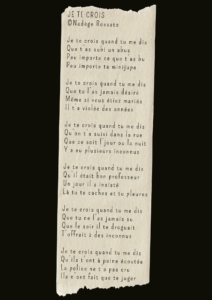 JE TE CROIS
©Nadège Rossato
Je te crois quand tu me dis
Que t'as subi un abus
Peu importe ce que t'as bu
Peu importe ta minijupe
Je te crois quand tu me dis
Que tu l'as jamais désiré
Même si vous étiez mariés
Il t'a violée des années
Je te crois quand tu me dis
Qu'on t'a suivi dans la rue
Que ce soit l'jour ou la nuit
Y'a eu plusieurs inconnus
Je te crois quand tu me dis
Qu'il était bon professeur
Un jour il a insisté
Là tu te caches et tu pleures
Je te crois quand tu me dis
Que tu ne l'as jamais su
Que le soir il te droguait
T'offrait à des inconnus
Je te crois quand tu me dis
Qu'ils t'ont à poire écoutée
La police ne t'a pas cru
Ils n'ont fait que te juger